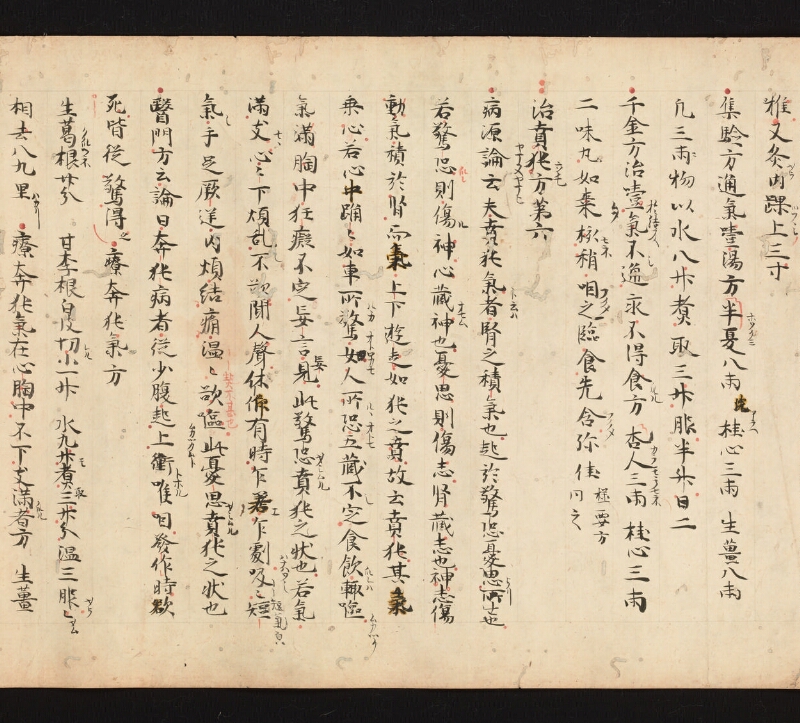 椎又灸内踝上三寸
集驗方通氣噎湯方半夏八兩 桂心三兩 生薑八兩
凡三物以水八升煮取三升服半升日二
千金方治噎氣不通求不得食方 杏人三兩 桂心三兩
二味丸如棗核稍咽之臨食先含弥佳 極要方同之
治賁㹠方第六
病源論云夫賁㹠氣者腎之積氣也起於驚恐憂思所生也
若驚恐則傷神心藏神也憂思則傷志腎藏志也神志傷
動氣積於腎而氣上下遊走如㹠之賁故云賁㹠其氣
乘心若心中踊〻如車所驚如人所恐五藏不定食飲輙嘔
氣滿胸中狂癡不定妄言見此驚恐賁㹠之狀也若氣
滿支心〻下煩乱不欲聞人聲休作有時乍若乍劇吸〻短
氣手足厥逆内煩結痛温〻欲嘔此憂思賁㹠之狀也
醫門方云論曰奔㹠病者從少腹起上衝喉咽發作時欲
死皆從驚得之 療奔㹠氣方
生葛根 甘李根白皮切小一升 水九升煮三升分温三服〻
相去八九里 療奔㹠氣在心胸中不下支滿者方 生薑